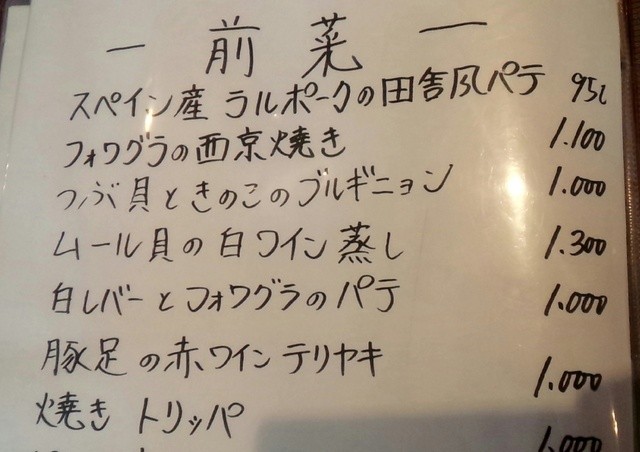 — 前菜 —
スペイン産 ラルポークの田舎風パテ
フォワグラの西京焼き 1.100
つぶ貝ときのこのブルギニョン 1.000
ムール貝の白ワイン蒸し 1.300
白レバーとフォワグラのパテ 1.000
豚足の赤ワインテリヤキ 1.000
焼きトリッパ 1.000